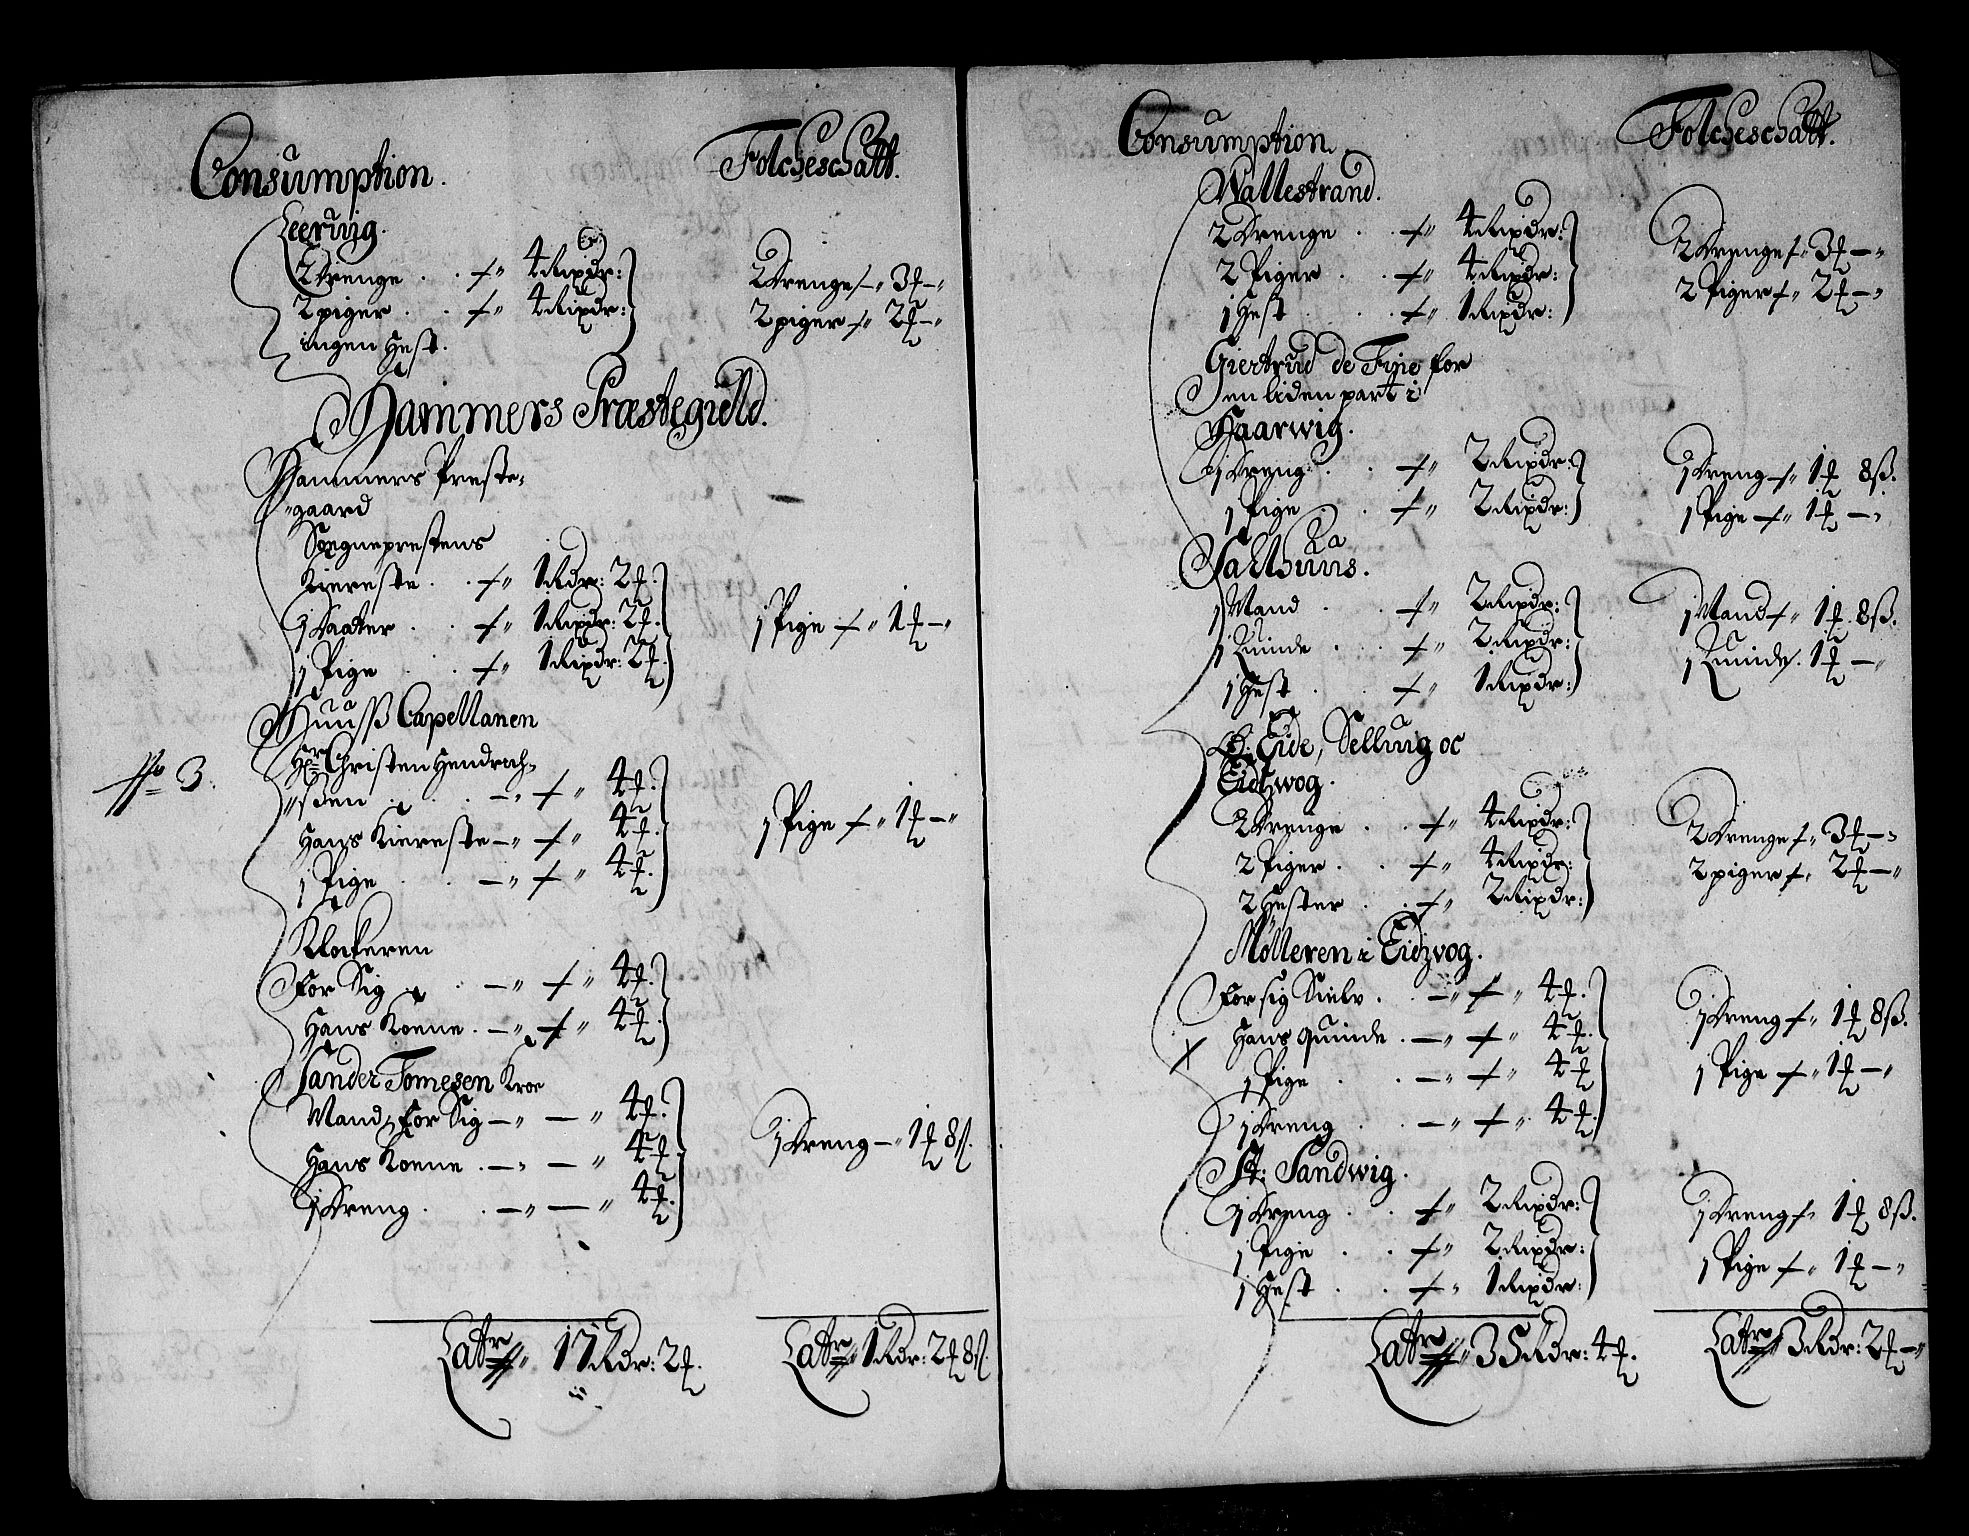 Consumption.
Folcheschatt.
Leervig.
2 Drenge . . 4 Rixdr:
2 Drenge 3
2 piger . . 4 Rixdr:
2 piger 2
ingen Hest.
Hammers Præstegield.
Hammers Preste-
gaard
Sogneprestens
Kiereste . . 1 Rdr: 2
1 Daater . . 1 Rixdr: 2
1 Pige . . 1 Rixdr: 2
1 Pige 1
Huuss Capellanen
Hr Christen Hendrich-
No 3.
sßen . . 4
Hans Kiereste 4
1 Pige . . 4
1 Pige 1
Klockeren
For Sig . . 4
Hans Koene . 4
Sander Tomesen Kroe
Mand, For Sig 4
Hans Koene . 4
1 Dreng . . 4
1 Dreng 1 8 ß.
Lattr 17 Rdr: 2
Lattr 1 Rdr: 2 8 ß.
Consumption.
Folcheschatt.
Wallestrand.
2 Drenge . . 4 Rixdr:
2 Drenge 3
2 Piger . . 4 Rixdr:
2 Piger 2
1 Hest . . 1 Rixdr:
Giertrud de Fine for
en liden part i
Haarwig.
1 Dreng . . 2 Rixdr:
1 Dreng 1 8 ß.
1 Pige . . 2 Rixdr:
1 Pige 1
Salthuus.
1 Mand . . 2 Rixdr:
1 Mand 1 8 ß.
1 Quinde . . 2 Rixdr:
1 Quinde 1
1 Hest . . 1 Rixdr:
Eide, Selluig oc
Eidtzwog.
2 Drenge . . 4 Rixdr:
2 Drenge 3
2 Piger . . 4 Rixdr:
2 piger 2
2 Hester . . 2 Rixdr:
Mølleren i Eidzvog.
For sig Sielv . . 4
1 Dreng 1 8 ß.
Hans quinde . 4
1 Pige . . 4
1 Pige 1
1 Dreng . . 4
St: Sandwig.
1 Dreng . . 2 Rixdr:
1 Dreng 1 8 ß.
1 Pige . . 2 Rixdr:
1 Pige 1
1 Hest . . 1 Rixdr:
Lattr 35 Rdr: 4
Lattr 3 Rdr: 2